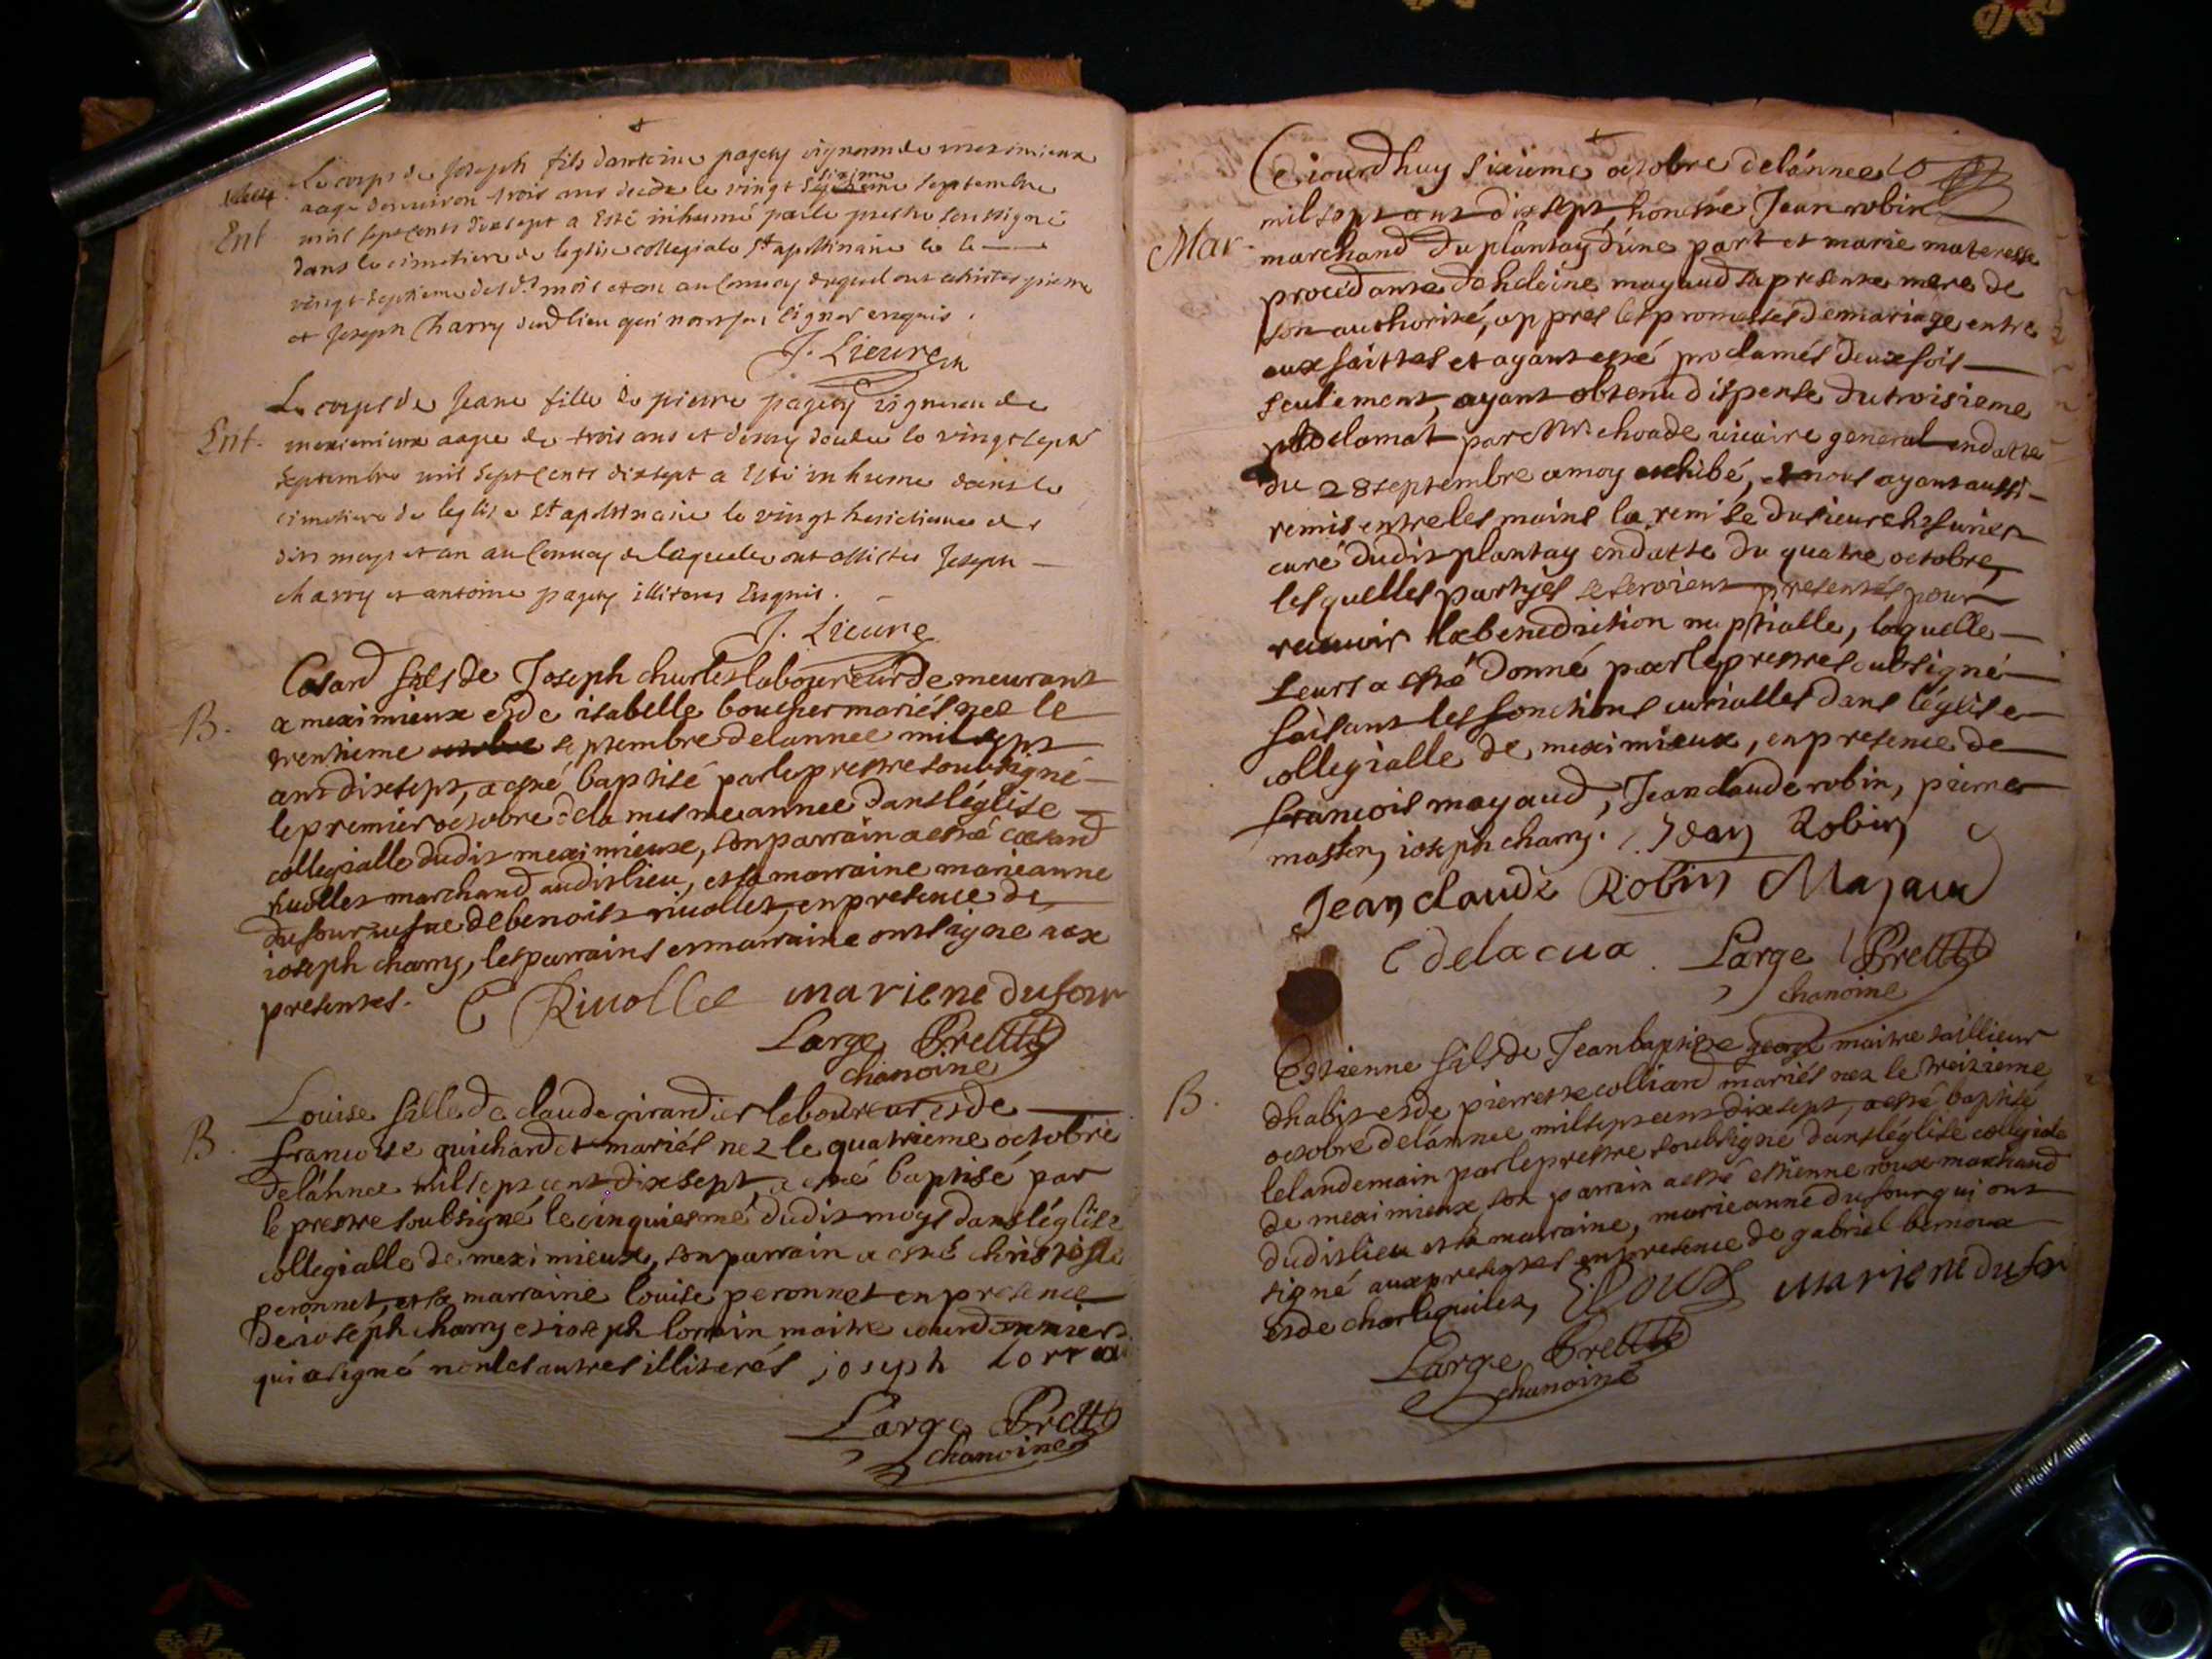 Le corps de Joseph fils dantoine pagey vigneron de meximieux
aage denviron trois ans decede le vingt sixieme septembre
Ent
mil sept cents dixsept a Esté inhumé par le prestre soussigné
dans le cimetiere de leglise collegiale st apollinaire le
vingt septieme desd. mois et an au Convoy duquel ont assistes pierre
et Joseph Charry dud lieu qui n'ont sçu signer enquis.
J. Lieure
Le corps de Jeane fille de pierre pagey vigneron de
Ent.
meximieux aagee de trois ans et demy decedee le vingt sept
septembre mil sept Cents dixsept a Esté inhume dans le
cimetiere de leglise st apollinaire le vingt huictieme des
dits moys et an au Convoy de laquelle ont assistes Joseph
charry et antoine pagey illiteres Enquis.
J. Lieure
Cesard fils de Joseph churlet laboureur demeurant
B.
a meximieux et de isabelle boucher mariés nee le
trentieme septembre delannee mil sept
cent dixsept, a esté baptisé par le prestre soubsigné
le premier octobre de la mesme annee dans léglise
collegialle dudit meximieux, son parrain a esté cesard
rivollet marchand audit lieu, et sa marraine marieanne
dufour vefve de benoist rivollet, en presence de
ioseph charry, les parrains et marraine ont signé aux
presentes. C Rivollet mariene dufour
Large Pretre
chanoine
Louise fille de claude girandier laboureur et de
B.
francoise guichardet mariés nez le quatrieme octobre
delánnee mil sept cent dixsept, a esté baptisé par
le prestre soubsigné le cinquiesme dudit moys dans léglise
collegialle de meximieux, son parrain a esté christofle
peronnet, et sa marraine louise peronnet en presence
de ioseph charry et ioseph lorrain maitre courdonnier
qui a signé non les autres illiterés joseph Lorra
Large Prettre
chanoine
Ceiourdhuy sixieme octobre delánnee
mil sept cent dixsept, honeste Jean robin
Mar
marchand du plantay dúne part et marie materesse
procedante dehelaine mayaud sa presente mere de
son authorité, appres les promesses de mariage entre
eux faittes et ayant esté proclamés deux fois
seulement, ayant obtenu dispense du troisieme
proclamat par Mr. choade vicaire general en datte
du 28 septembre a moy exhibé, et nous ayant aussi
remis entre les mains la remise du sieur
curé dudit plantay en datte du quatre octobre,
lesquelles partyes se seroient presentés pour
recevoir la benediction nuptialle, laquelle
leurs a esté donné par le prestre soubsigné
faisant les fonctions curialles dans léglise
collegialle de meximieux, en presence de
francois mayaud, Jean claude robin, pierre
masson, ioseph charry. Jean Robin
Jean claude Robin Majaud
C delacua Large Prettre
chanoine
Estienne fils de Jean baptiste george maitre taillieur
B.
dhabit et de pierrette colliard mariés nez le treizieme
octobre delánnee mil sept cens dixsept, a esté baptisé
lelandemain par le prestre soubsigne dans léglise collegiale
de meximieux, son parrain a esté estienne roux marchand
dudit lieu et sa marraine, marieanne dufour qui ont
signé aux presentes en presence de gabriel bernoux
et de charle quilez, E. Roux mariene dufor
Large Prettre
chanoine